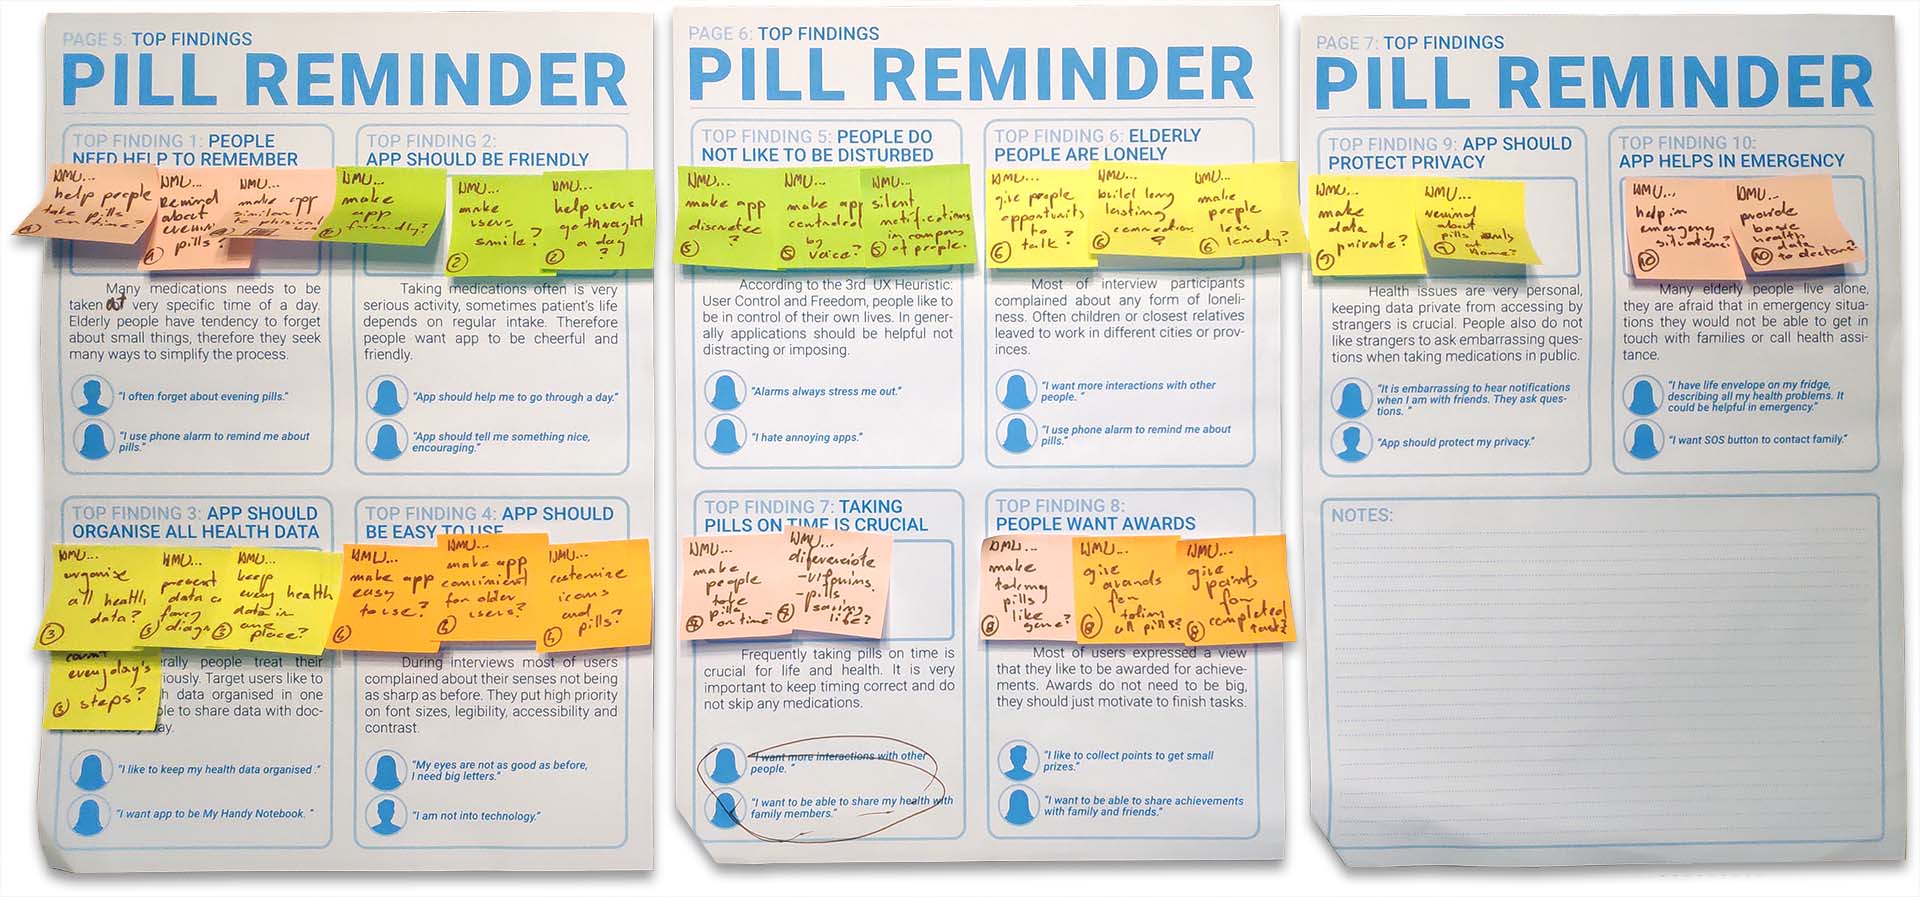 PAGE 5: TOP FINDINGS
PILL REMINDER
TOP FINDING 1: PEOPLE
NEED HELP TO REMEMBER
HMU...
help people
take pills
on time?
1
HMU...
Remind
about
evening
pills?
1
HMU...
make app
similar
to physical
TOP FINDING 2:
APP SHOULD BE FRIENDLY
HMU...
make
app
friendly?
HMU...
make
users
smile?
2
HMU...
help users
go throught
a day
?
2
Many medications needs to be
taken at very specific time of a day.
Elderly people have tendency to forget
about small things, therefore they seek
many ways to simplify the process.
"I often forget about evening pills."
"I use phone alarm to remind me about
pills."
Taking medications often is very
serious activity, sometimes patient's life
depends on regular intake. Therefore
people want app to be cheerful and
friendly.
"App should help me to go through a day."
"App should tell me something nice,
encouraging."
TOP FINDING 3: APP SHOULD
ORGANISE ALL HEALTH DATA
HMU...
organise
all health
data?
3
HMU...
present
data
HMU...
keep
every health
data in
one
place?
3
count
everyday's
steps?
3
erally people treat their
iously. Target users like to
h data organised in one
ble to share data with doc-
way.
"I like to keep my health data organised."
"I want app to be My Handy Notebook. "
TOP FINDING 4: APP SHOULD
BE EASY TO USE
HMU...
make app
easy
to use?
4
HMU...
make app
convinient
for older
users?
4
HMU...
customize
icons
and
pills?
4
During interviews most of users
complained about their senses not being
as sharp as before. They put high priority
on font sizes, legibility, accessibility and
contrast.
"My eyes are not as good as before,
I need big letters."
"I am not into technology."
PAGE 6: TOP FINDINGS
PILL REMINDER
TOP FINDING 5: PEOPLE DO
NOT LIKE TO BE DISTURBED
HMU...
make app
discrete
?
5
HMU...
make app
controled
by
voice?
5
HMU...
silent
notifications
in company
of people.
5
According to the 3rd UX Heuristic:
User Control and Freedom, people like to
be in control of their own lives. In gener-
ally applications should be helpful not
distracting or imposing.
"Alarms always stress me out."
"I hate annoying apps."
TOP FINDING 6: ELERLY
PEOPLE ARE LONELY
HMU...
give people
opportunity
to
talk?
6
HMU...
build long
lasting
connection
?
6
HMU...
make
people
less
lonely?
6
Most of interview participants
complained about any form of loneli-
ness. Often children or closest relatives
leaved to work in different cities or prov-
inces.
"I want more interactions with other
people. "
"I use phone alarm to remind me about
pills."
TOP FINDING 7: TAKING
PILLS ON TIME IS CRUCIAL
HMU...
make
people
take
pills
on time?
7
HMU...
diferenciate
- vitamins
- pills
saving
life?
7
Frequently taking pills on time is
crucial for life and health. It is very
important to keep timing correct and do
not skip any medications.
"I want more interactions with other
people. "
"I want to be able to share my health with
family members."
TOP FINDING 8:
PEOPLE WANT AWARDS
HMU...
make
taking
pills
like
game?
8
HMU...
give
awards
for
taking
all pills?
8
HMU...
give
points
for
completed
task?
8
Most of users expressed a view
that they like to be awarded for achieve-
ments. Awards do not need to be big,
they should just motivate to finish tasks.
"I like to collect points to get small
prizes."
"I want to be able to share achievements
with family and friends."
PAGE 7: TOP FINDINGS
PILL REMINDER
TOP FINDING 9: APP SHOULD
PROTECT PRIVACY
HMU...
make
data
private?
9
HMU...
remind
about
pills only
at
home?
9
Health issues are very personal,
keeping data private from accessing by
strangers is crucial. People also do not
like strangers to ask embarrassing ques-
tions when taking medications in public.
"It is embarrassing to hear notifications
when I am with friends. They ask ques-
tions. "
"App should protect my privacy."
TOP FINDING 10:
APP HELPS IN EMERGENCY
HMU...
help in
emergency
situations?
10
HMU...
provide
basic
health
data
to doctors?
10
Many elderly people live alone,
they are afraid that in emergency situa-
tions they would not be able to get in
touch with families or call health assi-
tance.
"I have life envelope on my fridge,
describing all my health problems. It
could be helpful in emergency."
"I want SOS button to contact family."
NOTES: